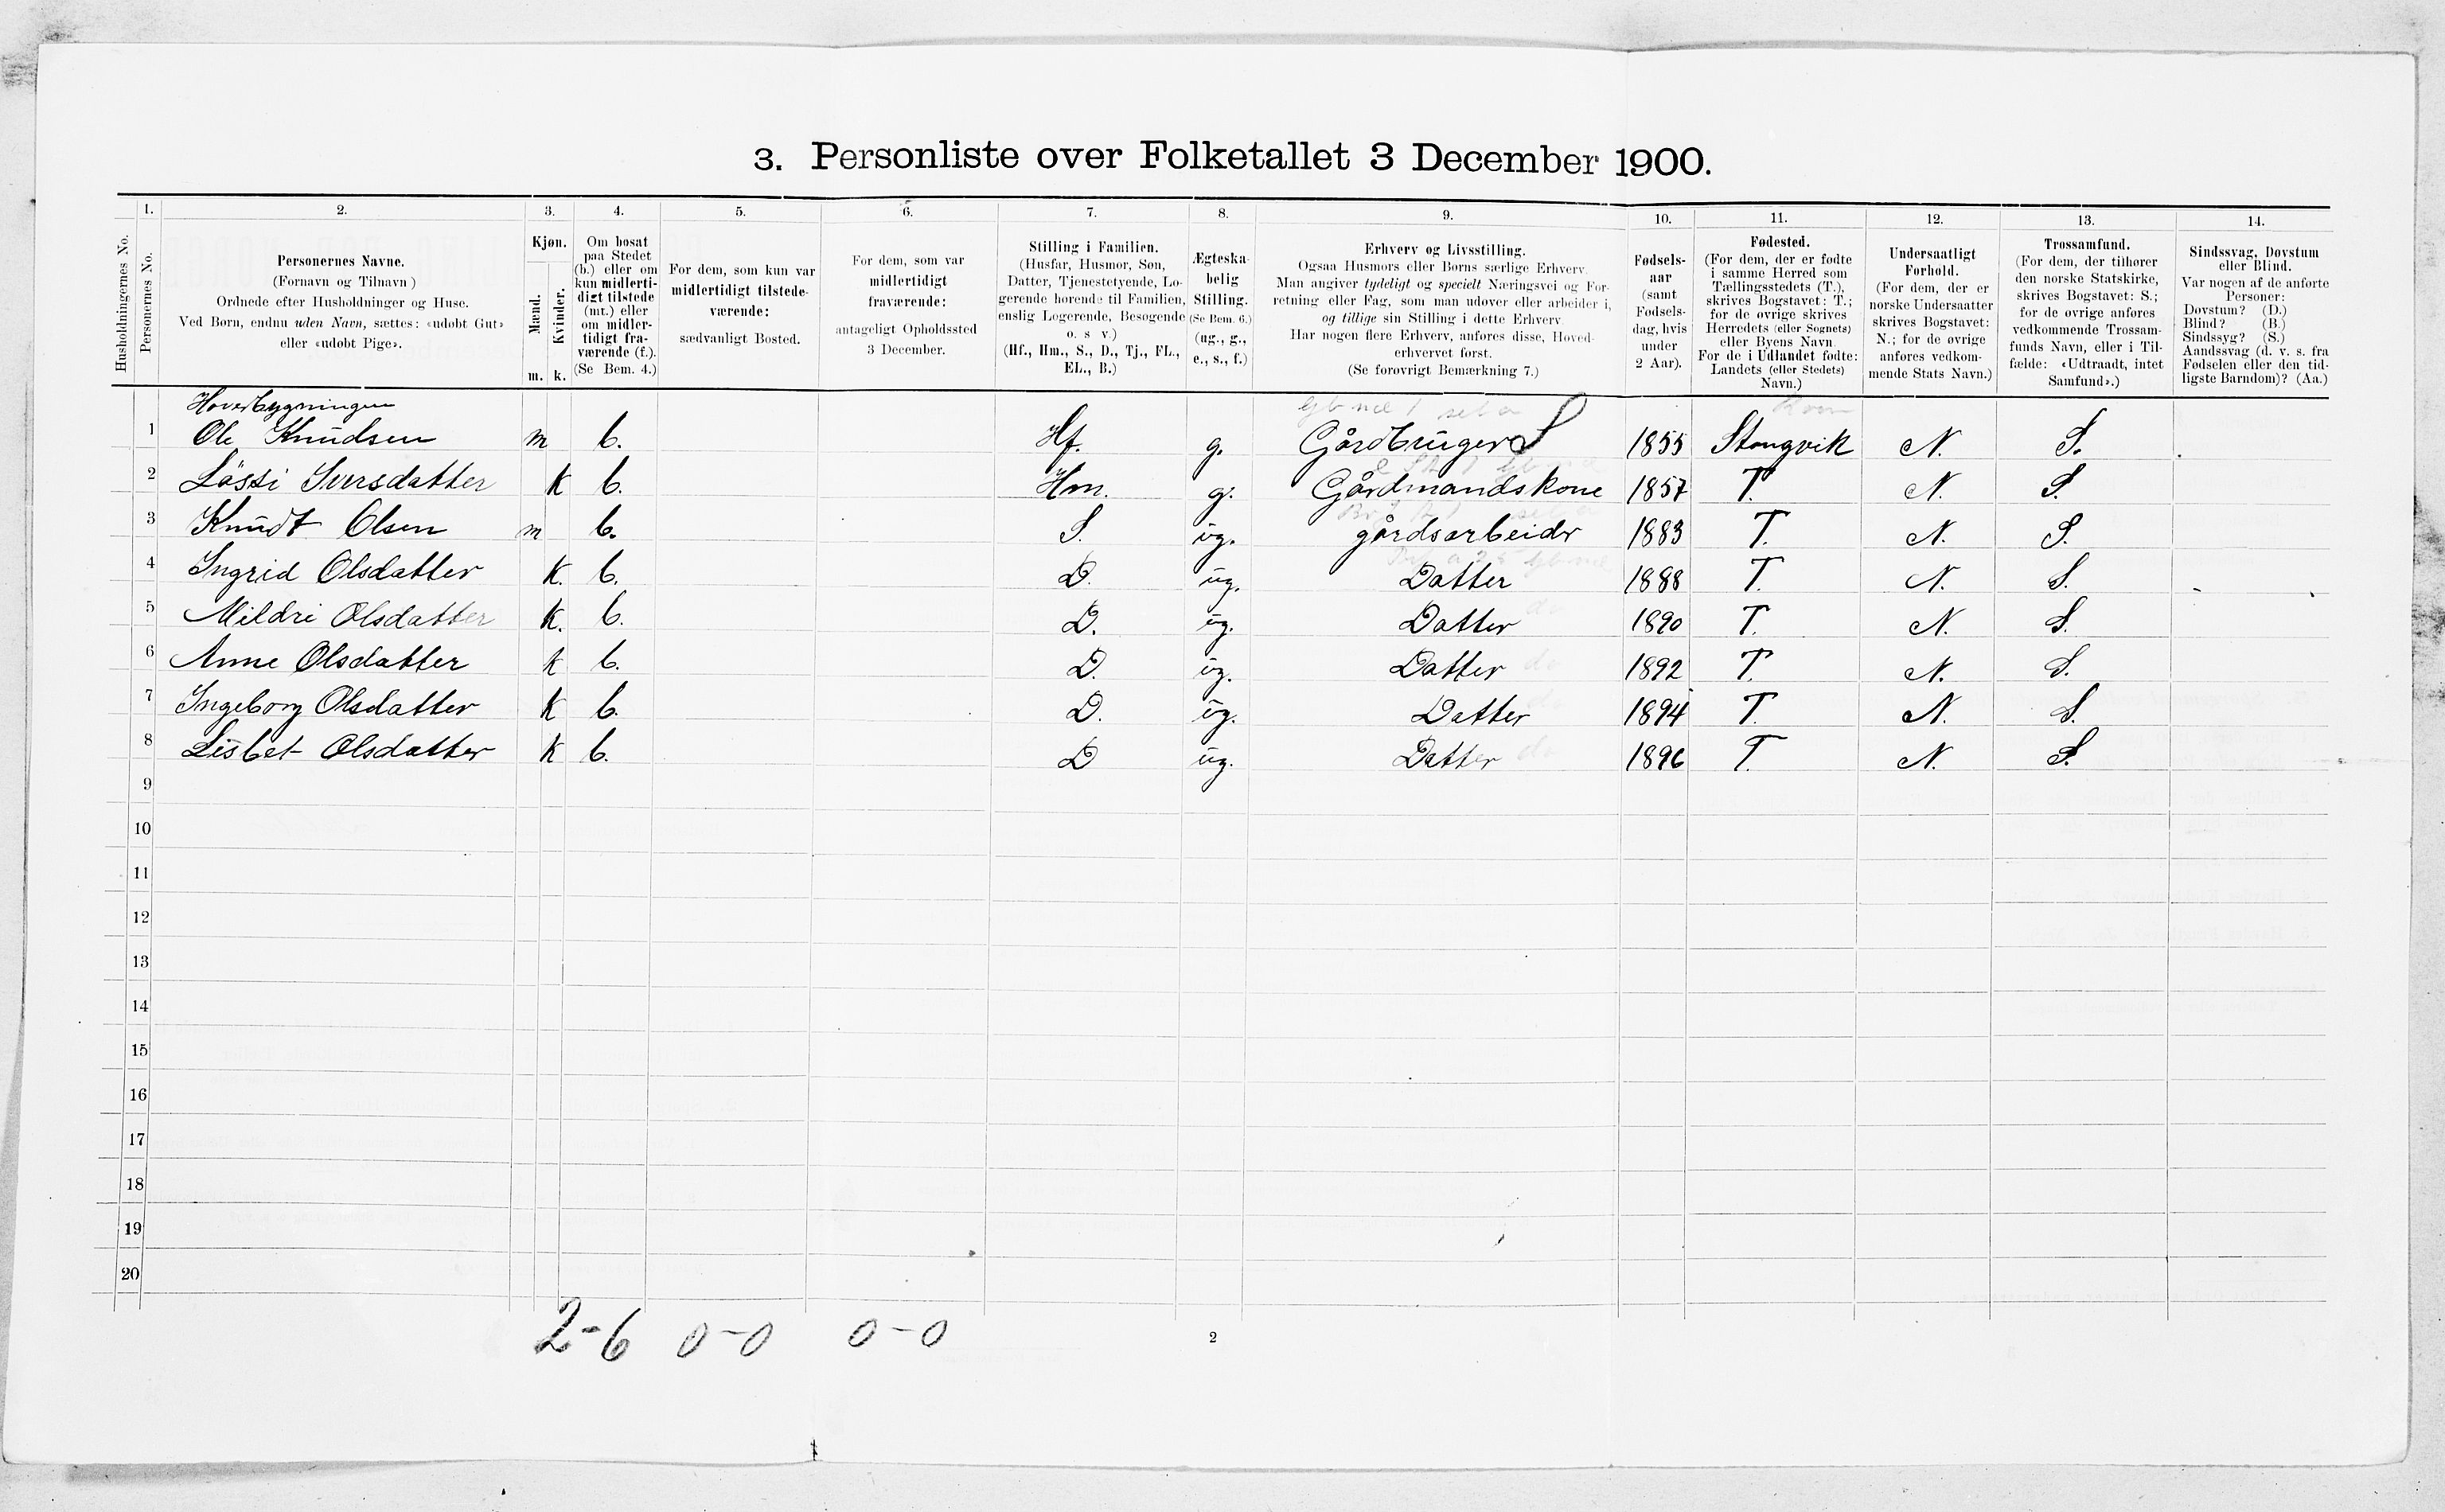 3. Personliste over Folketallet 3 December 1900.
1. 2. 3. 4. 5. 6. 7. 8. 9. 10. 11. 12. 13. 14.
Husholdningernes No.
Personernes No.
Personernes Navne.
(Fornavn og Tilnavn)
Ordnede efter Husholdninger og Huse.
Ved Børn, endnu uden Navn, sættes: «udøbt Gut»
eller «udøbt Pige».
Kjøn.
Mænd.
Kvinder.
m. k.
Om bosat
paa Stedet
(b.) eller om
kun midlerti-
digt tilstede
(mt.) eller
om midler-
tidigt fra-
værende (f.).
(Se Bem. 4.)
For dem, som kun var
midlertidigt tilstede-
værende:
sædvanligt Bosted.
For dem, som var
midlertidigt
fraværende:
antageligt Opholdssted
3 December.
Stilling i Familien.
(Husfar, Husmor, Søn,
Datter, Tjenestetyende, Lo-
gerende hørende til Familien,
enslig Logerende, Besøgende
o. s v.)
(Hf., Hm., S., D., Tj., FL.,
EL., B.)
Ægteska-
belig
Stilling.
(Se Bem. 6.)
(ug., g.,
e., s., f.)
Erhverv og Livsstilling.
Ogsaa Husmors eller Børns særlige Erhverv.
Man angiver tydeligt og specielt Næringsvei og For-
retning eller Fag, som man udover eller arbeider i,
og tillige sin Stilling i dette Erhverv.
Har nogen flere Erhverv, anføres disse, Hoved-
erhvervet først.
(Se forøvrigt Bemærkning 7.)
Fødsels-
aar
(samt
Fødsels-
dag, hvis
under
2 Aar).
Fødested.
(For dem, der er fødte
i samme Herred som
Tællingsstedets (T.),
skrives Bogstavet: T.;
for de øvrige skrives
Herredets (eller Sognets)
eller Byens Navn.
For de i Udlandet fødte:
Landets (eller Stedets)
Navn.)
Undersaatligt
Forhold.
(For dem, der er
norske Undersaatter
skrives Bogstavet:
N.; for de øvrige
anføres vedkom-
mende Stats Navn.)
Trossamfund.
(For dem, der tilhører
den norske Statskirke,
skrives Bogstavet: S.;
for de øvrige anføres
vedkommende Trossam-
funds Navn, eller i Til-
fælde: «Udtraadt, intet
Samfund».)
Sindssvag, Døvstum
eller Blind.
Var nogen af de anførte
Personer:
Døvstum? (D.)
Blind? (B.)
Sindssyg? (S.)
Aandssvag (d. v. s. fra
Fødselen eller den tid-
ligste Barndom)? (Aa.)
Hovedbygningen
1 Ole Knudsen m b. Hf. g. Gårdbruger S 1855 Stangvik N. S.
2 Iversdatter K b. Hm. g. Gårdmandskone 1857 T. N. S.
3 Knudt Olsen m b. S. ug. gårdsarbeider 1883 T. N. S.
4 Ingrid Olsdatter K. b. D. ug. Datter 1888 T. N. S.
5 Mildri Olsdatter K. b. D. ug. Datter 1890 T. N. S.
6 Anne Olsdatter K b. D. ug. Datter 1892 T. N. S.
7 Ingeborg Olsdatter K b. D. ug. Datter 1894 T. N. S.
8 Lisbet Olsdatter K b. D ug. Datter 1896 T. N. S.
9
10
11
12
13
14
15
16
17
18
19
20
2-6 0-0 0-0
2